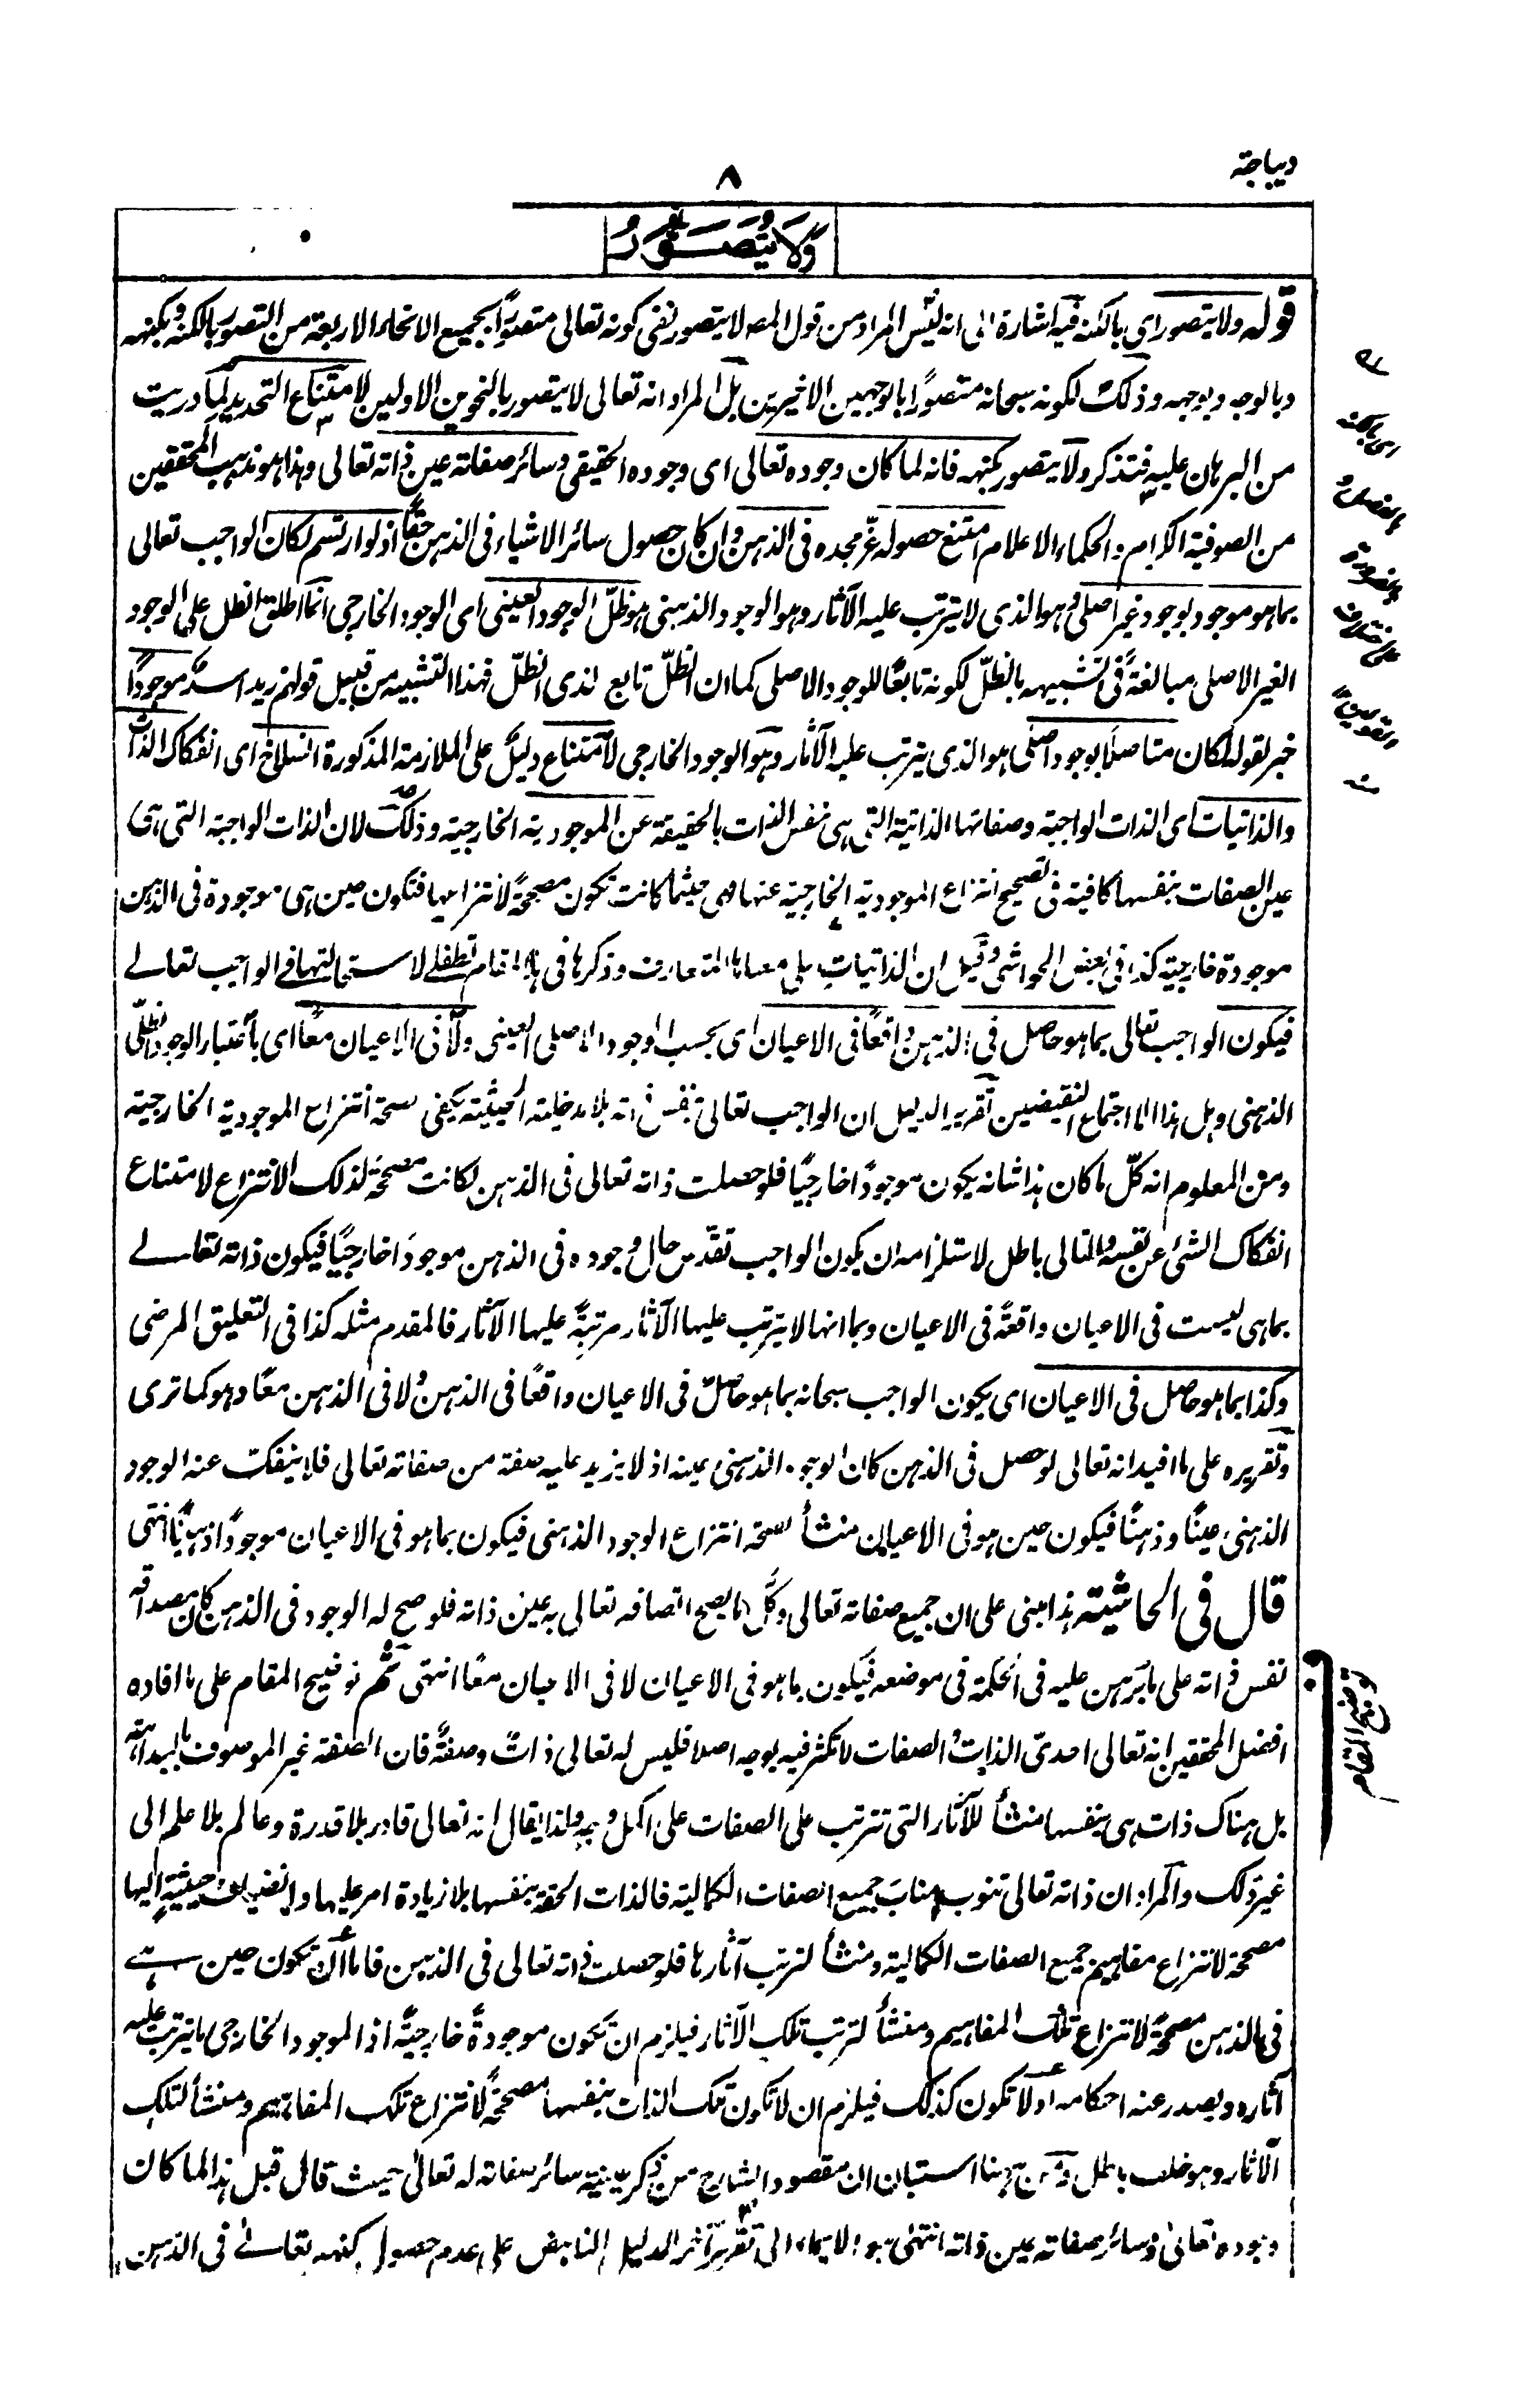 ديباجة
٨
ولا يتصور
قوله ولا يتصور اى بالكنه فيه اشارة الى انه ليس المراد من قول المصـ لا يتصور نفى كونه تعالى متصورًا بجميع الانحاء الاربعة من التصور بالكنه وبكنهه
وبالوجه وبوجهه وذلك لكونه سبحانه متصورًا بالوجهين الاخيرين بل المراد انه تعالى لا يتصور بالنحوين الاولين لامتناع التحديد لما دريت
من البرهان عليه فتذكر ولا يتصور بكنهه فانه لما كان وجوده تعالى اى وجوده الحقيقى وسائر صفاته عين ذاته تعالى وهذا هو مذهب المحققين
من الصوفية الكرام والحكماء الاعلام امتنع حصوله عزّ مجده فى الذهن وان كان حصول سائر الاشياء فى الذهن حقًا اذ لو ارتسم لكان الواجب تعالى
بما هو موجود بوجود غير اصلى وهو الذى لا يترتب عليه الآثار وهو الوجود الذهنى هو ظلّ الوجود العينى اى الوجود الخارجى انما اطلق الظل على الوجود
الغير الاصلى مبالغةً فى تشبيهه بالظلّ لكونه تابعًا للوجود الاصلى كما ان الظلّ تابع لذى الظلّ فهذا التشبيه من قبيل قولهم زيد اسدٌ موجودًا
خبر لقوله لكان متاصلًا بوجود اصلى هو الذى يترتب عليه الآثار وهو الوجود الخارجى لامتناع دليلٌ على الملازمة المذكورة انسلاخ اى انفكاك الذات
والذاتيات اى الذات الواجبة وصفاتها الذاتية التى هى نفس الذات بالحقيقة عن الموجودية الخارجية وذلك لان الذات الواجبة التى هى
عين الصفات بنفسها كافية فى تصحيح انتزاع الموجودية الخارجية عنها فهى حيثما كانت تكون مصححةً لانتزاعها فتكون حين هى موجودة فى الذهن
موجودة خارجية كذا فى بعض الحواشى وقيل ان الذاتيات على معناها المتعارف وذكرها فى هذا المقام تطفلے لاستحالتها فے الواجب تعالے
فيكون الواجب تعالى بما هو حاصل فى الذهن واقعًا فى الاعيان اى بحسب الوجود الاصلى العينى ولا فى الاعيان معًا اى باعتبار الوجود الظلى
الذهنى وهل هذا الا اجتماع النقيضين تقرير الدليل ان الواجب تعالى بنفس ذاته بلا مدخلية الحيثية يكفى لصحة انتزاع الموجودية الخارجية
ومن المعلوم انه كلّ ما كان هذا شانه يكون موجودًا خارجيًا فلو حصلت ذاته تعالى فى الذهن لكانت مصححة لذلك الانتزاع لامتناع
انفكاك الشئ عن نفسه والتالى باطل لاستلزامه ان يكون الواجب تقدّس حال وجوده فى الذهن موجودًا خارجيًا فيكون ذاته تعالے
بما هى ليست فى الاعيان واقعةً فى الاعيان وبما انها لا يترتب عليها الآثار مرتبةً عليها الآثار فالمقدم مثله كذا فى التعليق المرضى
وكذا بما هو حاصل فى الاعيان اى يكون الواجب سبحانه بما هو حاصلٌ فى الاعيان واقعًا فى الذهن ولا فى الذهن معًا وهو كما ترى
وتقريره على ما افيد انه تعالى لو حصل فى الذهن كان الوجود الذهنى عينه اذ لا يزيد عليه صفة من صفاته تعالى فلا ينفك عنه الوجود
الذهنى عينًا وذهنًا فيكون حين هو فى الاعيان منشأ لصحة انتزاع الوجود الذهنى فيكون بما هو فى الاعيان موجودًا ذهنيًا انتهى
قال فى الحاشية هذا مبنى على ان جميع صفاته تعالى وكل ما يصح اتصافه تعالى به عين ذاته فلو صح له الوجود فى الذهن كان مصداقه
نفس ذاته على ما برهن عليه فى الحكمة فى موضعه فيكون بما هو فى الاعيان لا فى الاعيان معًا انتهى ثم توضيح المقام على ما افاده
افضل المحققين انه تعالى احدىّ الذات والصفات لا تكثر فيه بوجه اصلا فليس له تعالى ذاتٌ وصفةٌ فان الصفة غير الموصوف بالبداهة
بل هناك ذات هى بنفسها منشأ للآثار التى تترتب على الصفات على اكمل وجه ولذا يقال انه تعالى قادر بلا قدرة وعالم بلا علم الى
غير ذلك والمراد ان ذاته تعالى تنوب مناب جميع الصفات الكمالية فالذات الحقة بنفسها بلا زيادة امر عليها وانضياف حيثيةٍ اليها
مصححة لانتزاع مفاهيم جميع الصفات الكمالية ومنشأ لترتب آثارها فلو حصلت ذاته تعالى فى الذهن فاما ان تكون حين هے
فى الذهن مصححةً لانتزاع تلك المفاهيم ومنشأً لترتب تلك الآثار فيلزم ان تكون موجودةً خارجيةً اذ الموجود الخارجى ما يترتب عليه
آثاره ويصدر عنه احكامه او لا تكون كذلك فيلزم ان لا تكون تلك الذات بنفسها مصححةً لانتزاع تلك المفاهيم ومنشأ لتلك
الآثار وهو خلف باطل ومن ههنا استبان ان مقصود الشارح من ذكر عينية سائر صفاته له تعالى حيث قال قبل هذا لما كان
وجوده تعالى وسائر صفاته عين ذاته انتهى هو الايماء الى تقرير آخر للدليل الناهض على عدم حصول كنهه تعالے فى الذهن
توضيح المقام